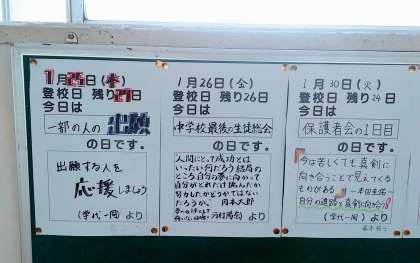 1月25日(木)
登校日 残り27日
今日は
一部の人の 出願
の日です。
出願する人を
応援しましょう
(学代一同) より
1月26日(金)
登校日 残り26日
今日は
中学校最後の生徒総会
の日です。
人間にとって成功とは
いったい何だろう 結局の
ところ、自分の夢に向かって
自分がどれだけ挑んだか
努力したかどうかではない
だろうか。 岡本太郎
より
1月30日(火)
登校日 残り24日
今日は
保護者会の1日目
の日です。
今は苦しくても真剣に
向き合うことで見えてくる
ものがある
ー本田圭佑ー
自分の進路と真剣に向き合う!
(学代一同) より